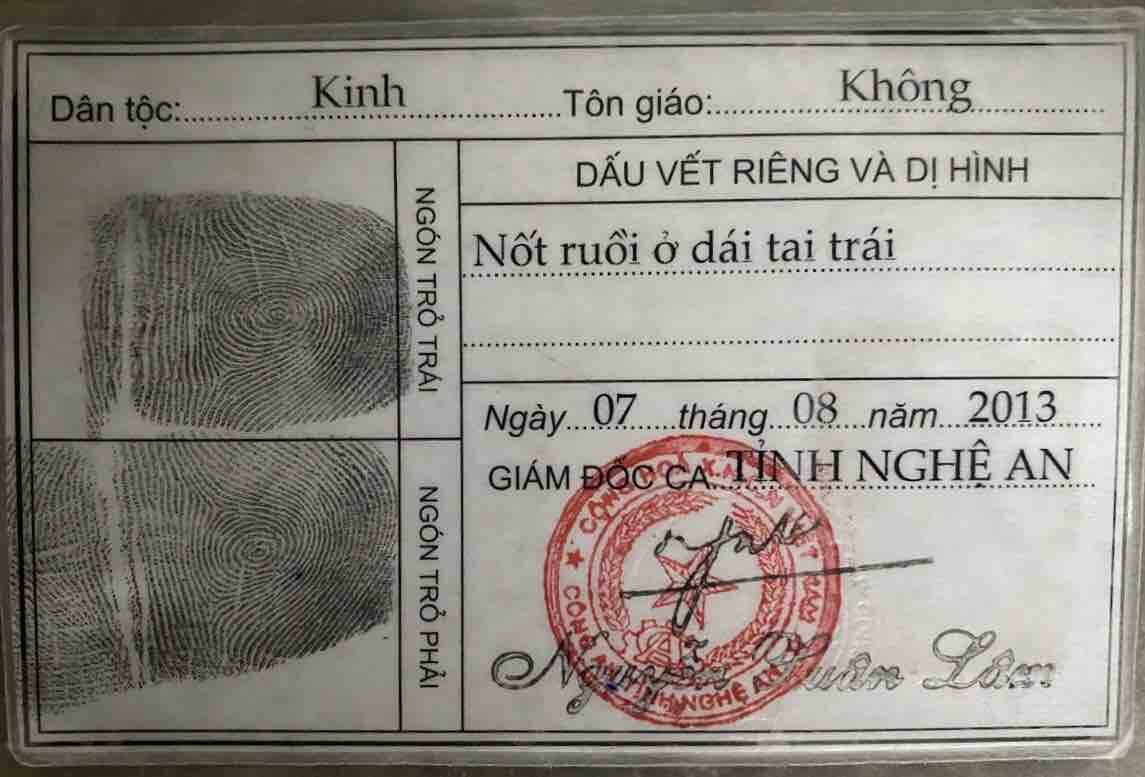 Dân tộc: Kinh Tôn giáo: Không
NGÓN TRỎ TRÁI
NGÓN TRỎ PHẢI
DẤU VẾT RIÊNG VÀ DỊ HÌNH
Nốt ruồi ở dái tai trái
Ngày 07 tháng 08 năm 2013
GIÁM ĐỐC CA TỈNH NGHỆ AN
CÔNG AN TỈNH NGHỆ AN
Nguyễn Xuân Lâm